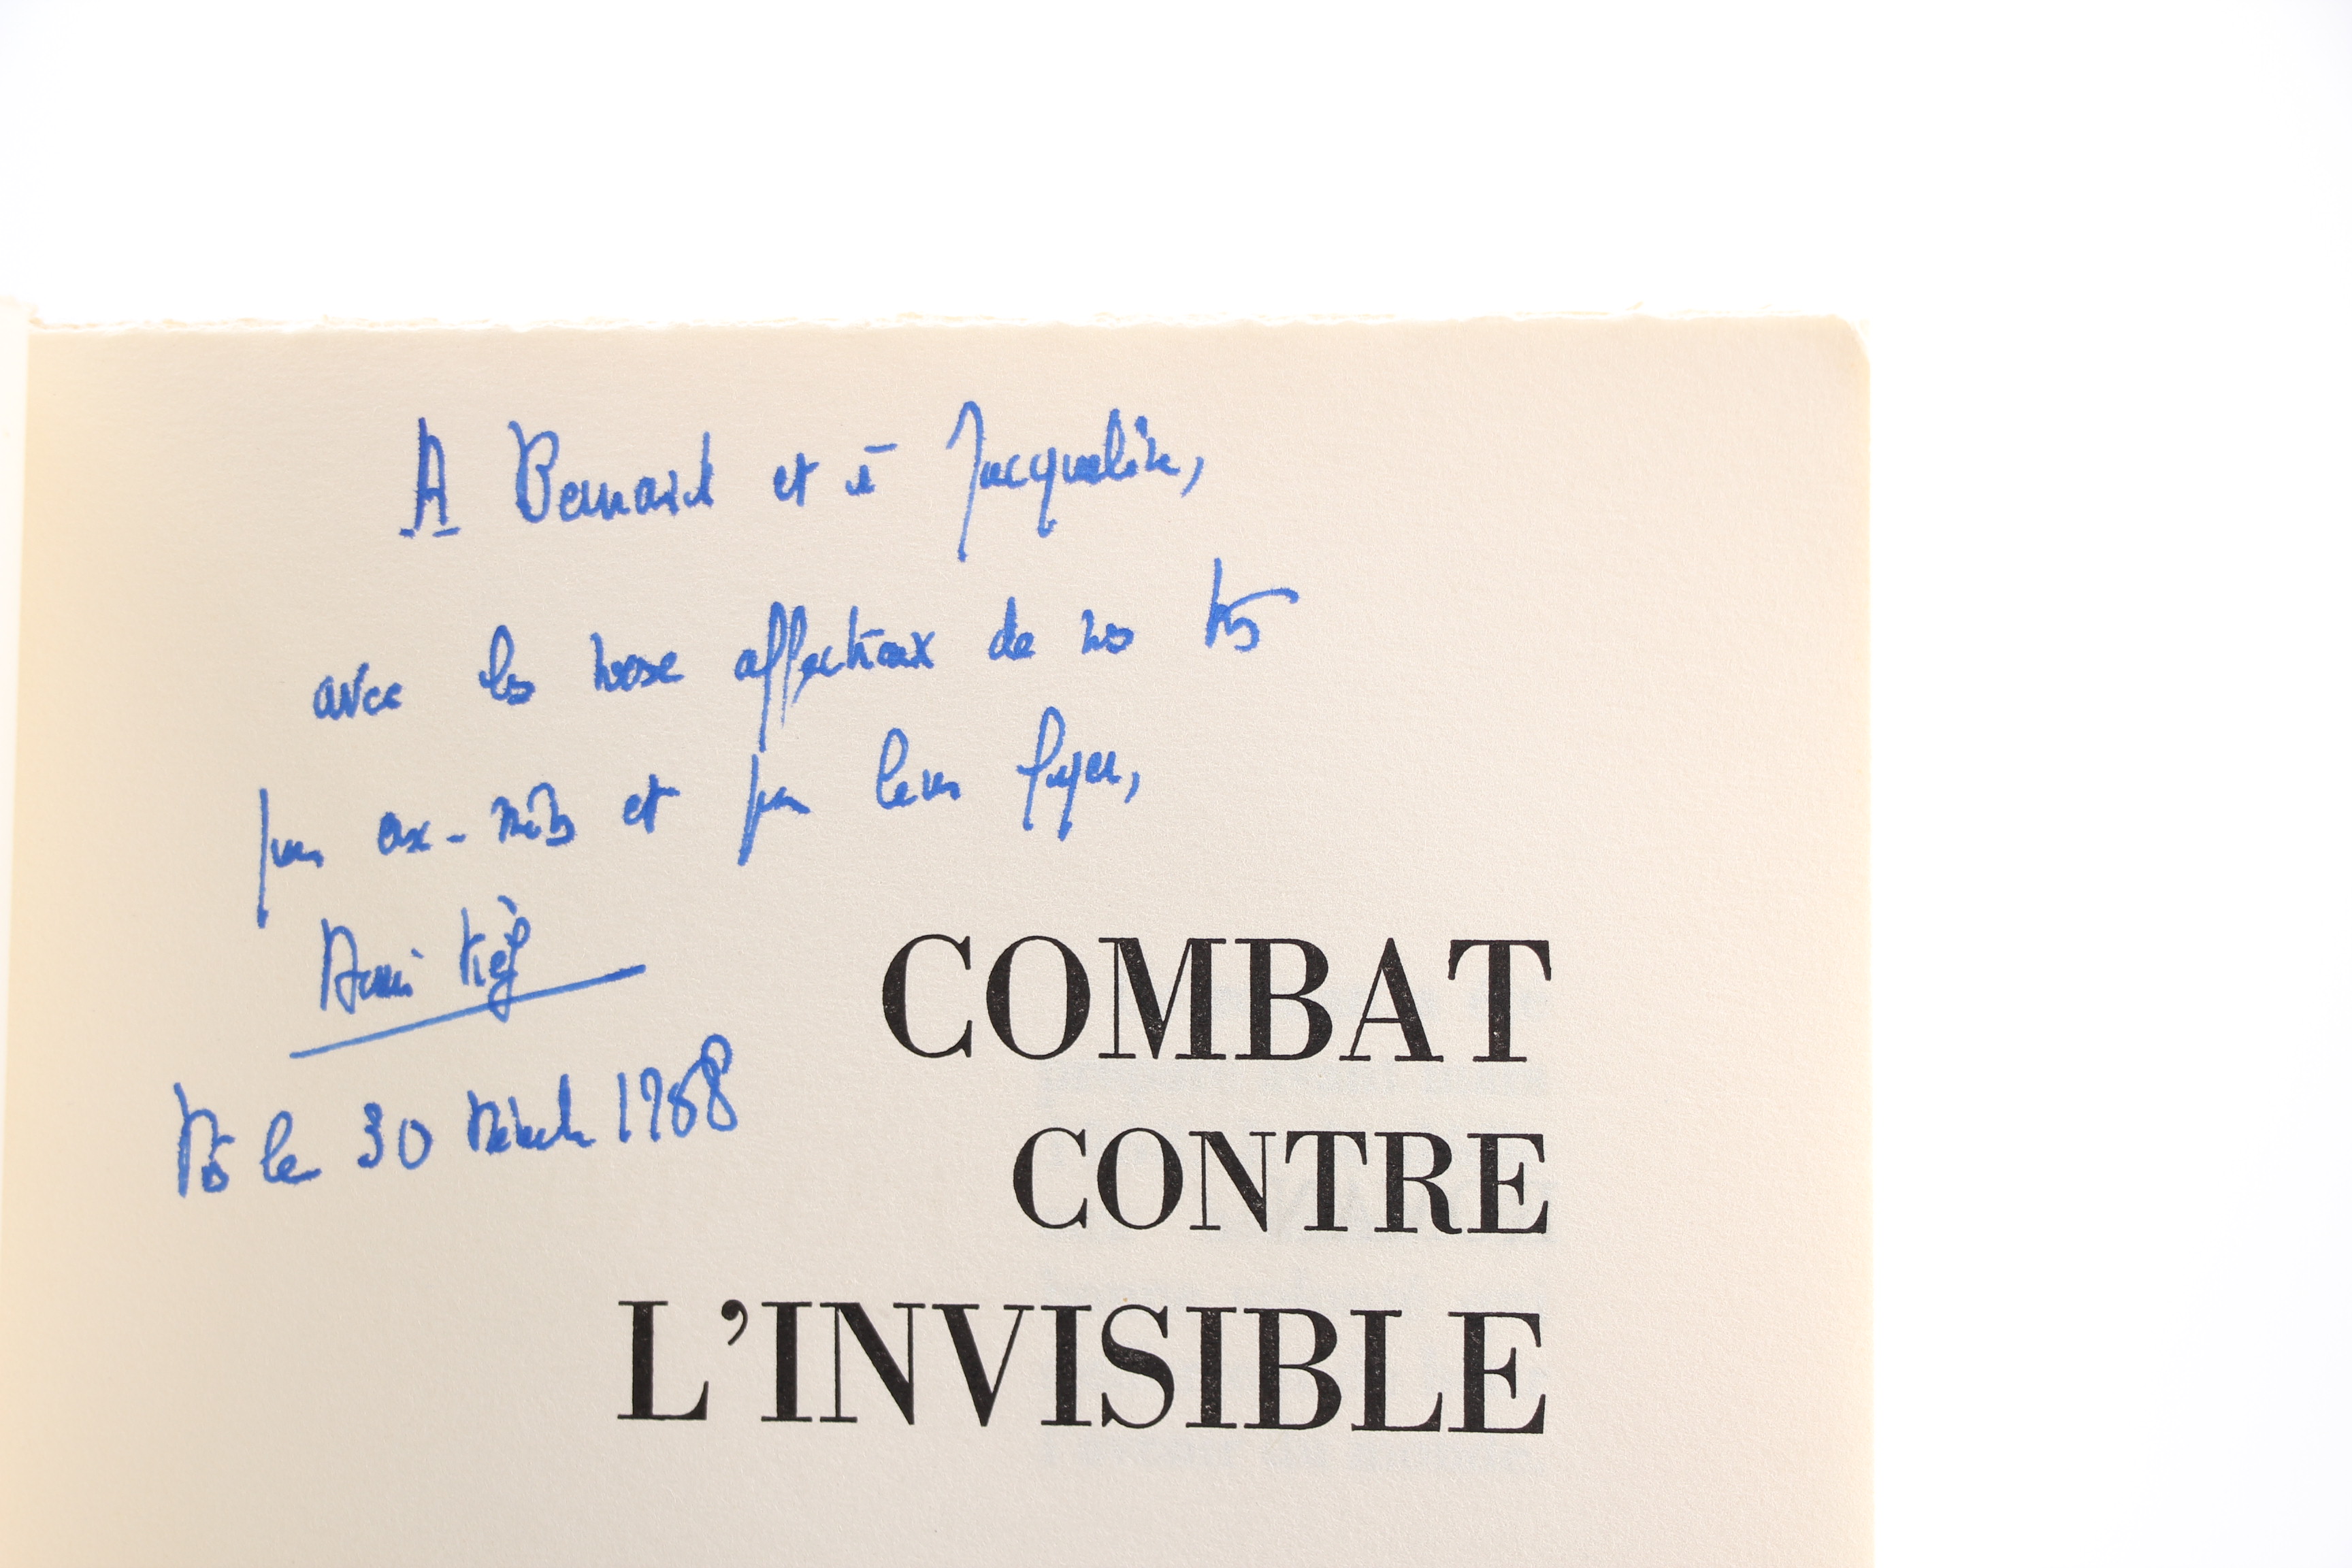 A Bernard et à Jacqueline,
avec les voeux affectueux de nos
pour eux-mêmes et pour leur foyer,
le 30 1968
COMBAT
CONTRE
L'INVISIBLE